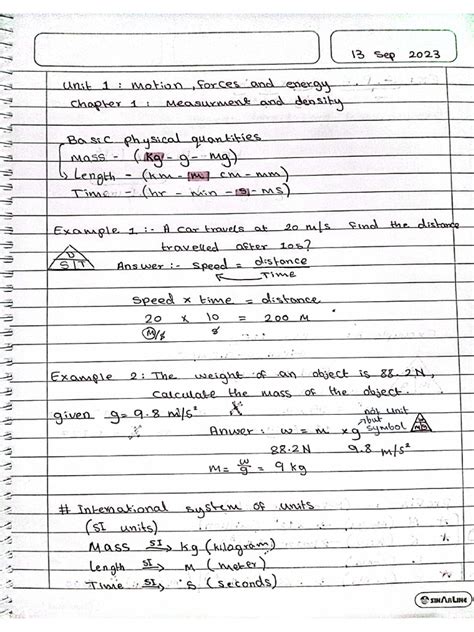 13 Sep 2023
Unit 1 : Motion, forces and energy
Chapter 1 : Measurment and density
Basic physical quantities
Mass - (kg - g - mg)
Length - (km - m cm - mm)
Time - (hr - min - s - ms)
Example 1 :- A car travels at 20 m/s find the distance
travelled after 10s?
D
S T
Answer :- Speed = distance
Time
Speed x time = distance
20 x 10 = 200 M
M/s s
Example 2 : The weight of an object is 88.2N,
calculate the mass of the object.
given g = 9.8 m/s²
not unit
but
symbol
Answer : w = m x g
88.2N 9.8 m/s²
M = w/g = 9 kg
# International system of units
(SI units)
Mass SI → kg (kilogram)
Length SI → M (meter)
Time SI → S (seconds)
SINARLINE